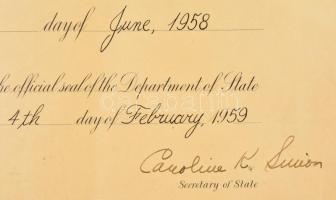 day of June, 1958
the official seal of the Department of State
4th day of February, 1959
Caroline K. Simon
Secretary of State